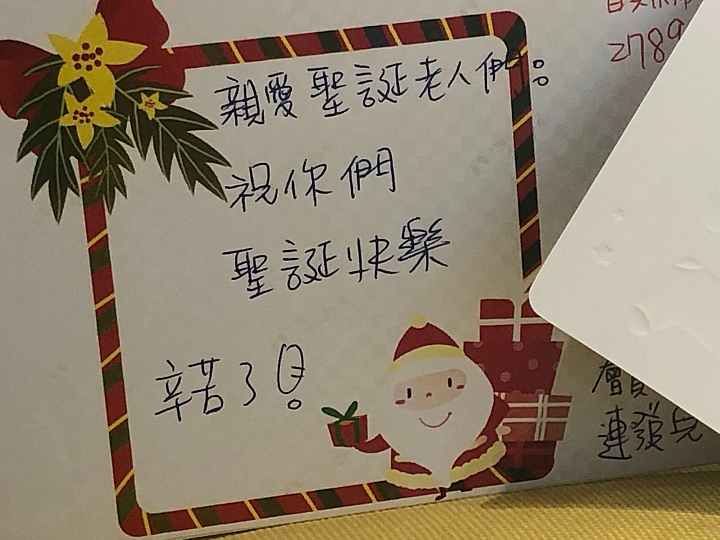 親愛聖誕老人們:
祝你們
聖誕快樂
辛苦了!
2789
連發兒